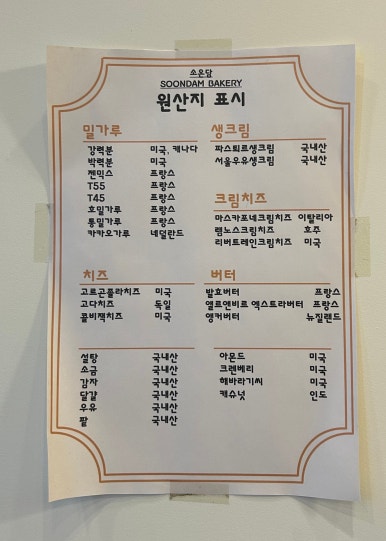 소온담
SOONDAM BAKERY
원산지 표시
밀가루
강력분 미국, 캐나다
박력분 미국
젠믹스 프랑스
T55 프랑스
T45 프랑스
호밀가루 프랑스
통밀가루 프랑스
카카오가루 네덜란드
생크림
파스퇴르생크림 국내산
서울우유생크림 국내산
크림치즈
마스카포네크림치즈 이탈리아
램노스크림치즈 호주
리버트레인크림치즈 미국
치즈
고르곤졸라치즈 미국
고다치즈 독일
콜비잭치즈 미국
버터
발효버터 프랑스
엘르앤비르 엑스트라버터 프랑스
앵커버터 뉴질랜드
설탕 국내산
소금 국내산
감자 국내산
달걀 국내산
우유 국내산
팥 국내산
아몬드 미국
크렌베리 미국
해바라기씨 미국
캐슈넛 인도